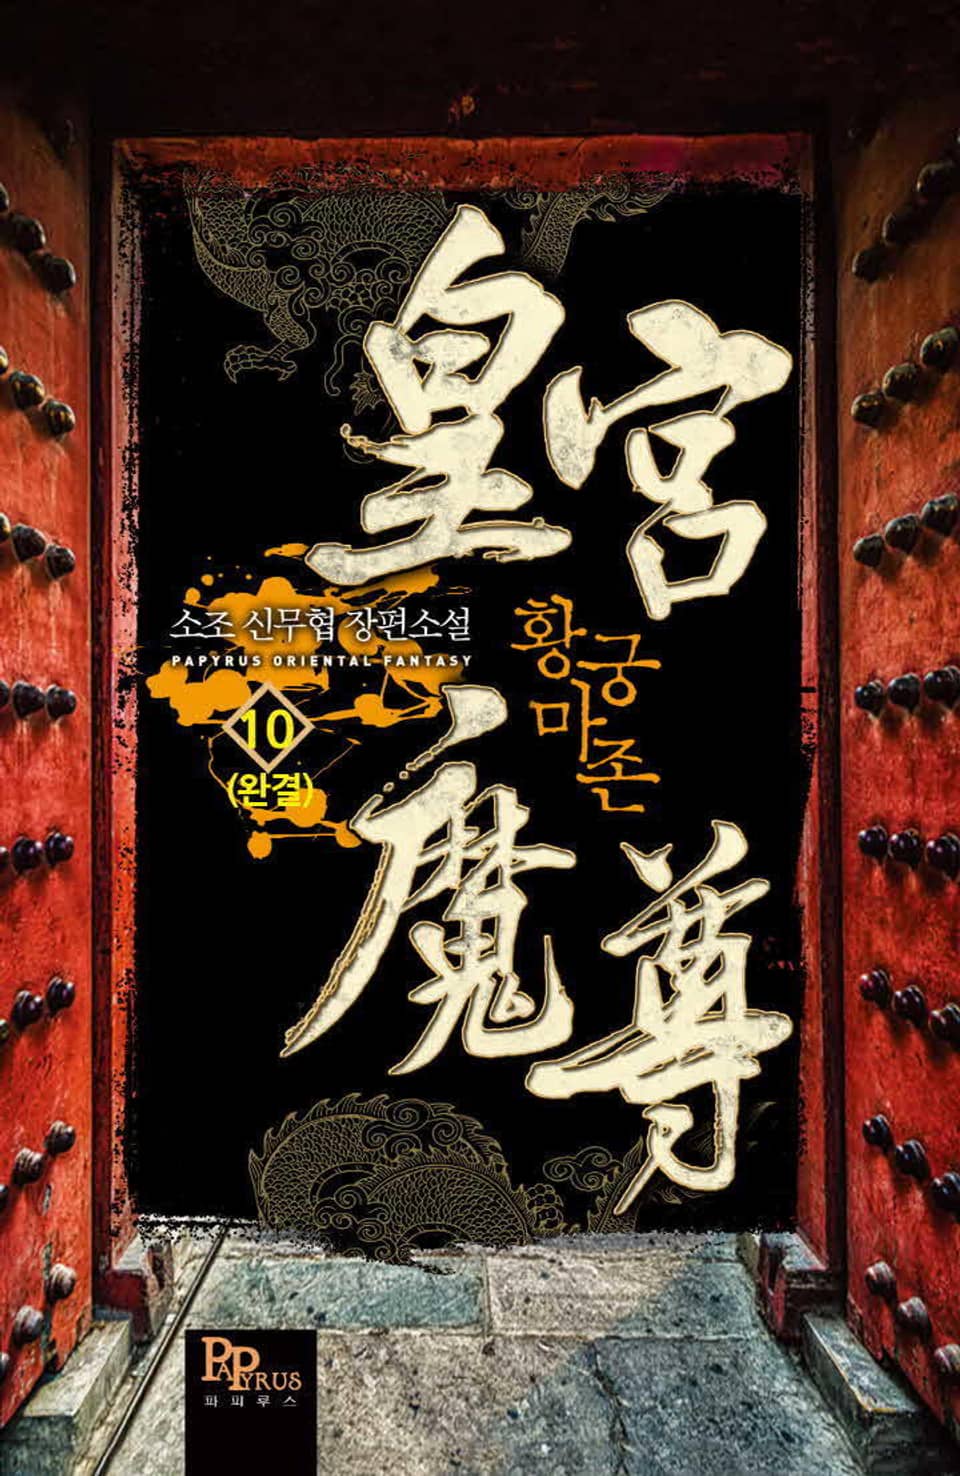 皇宮
소조 신무협 장편소설
PAPYRUS ORIENTAL FANTASY
황궁
마존
10
(완결)
魔尊
PAPYRUS
파피루스